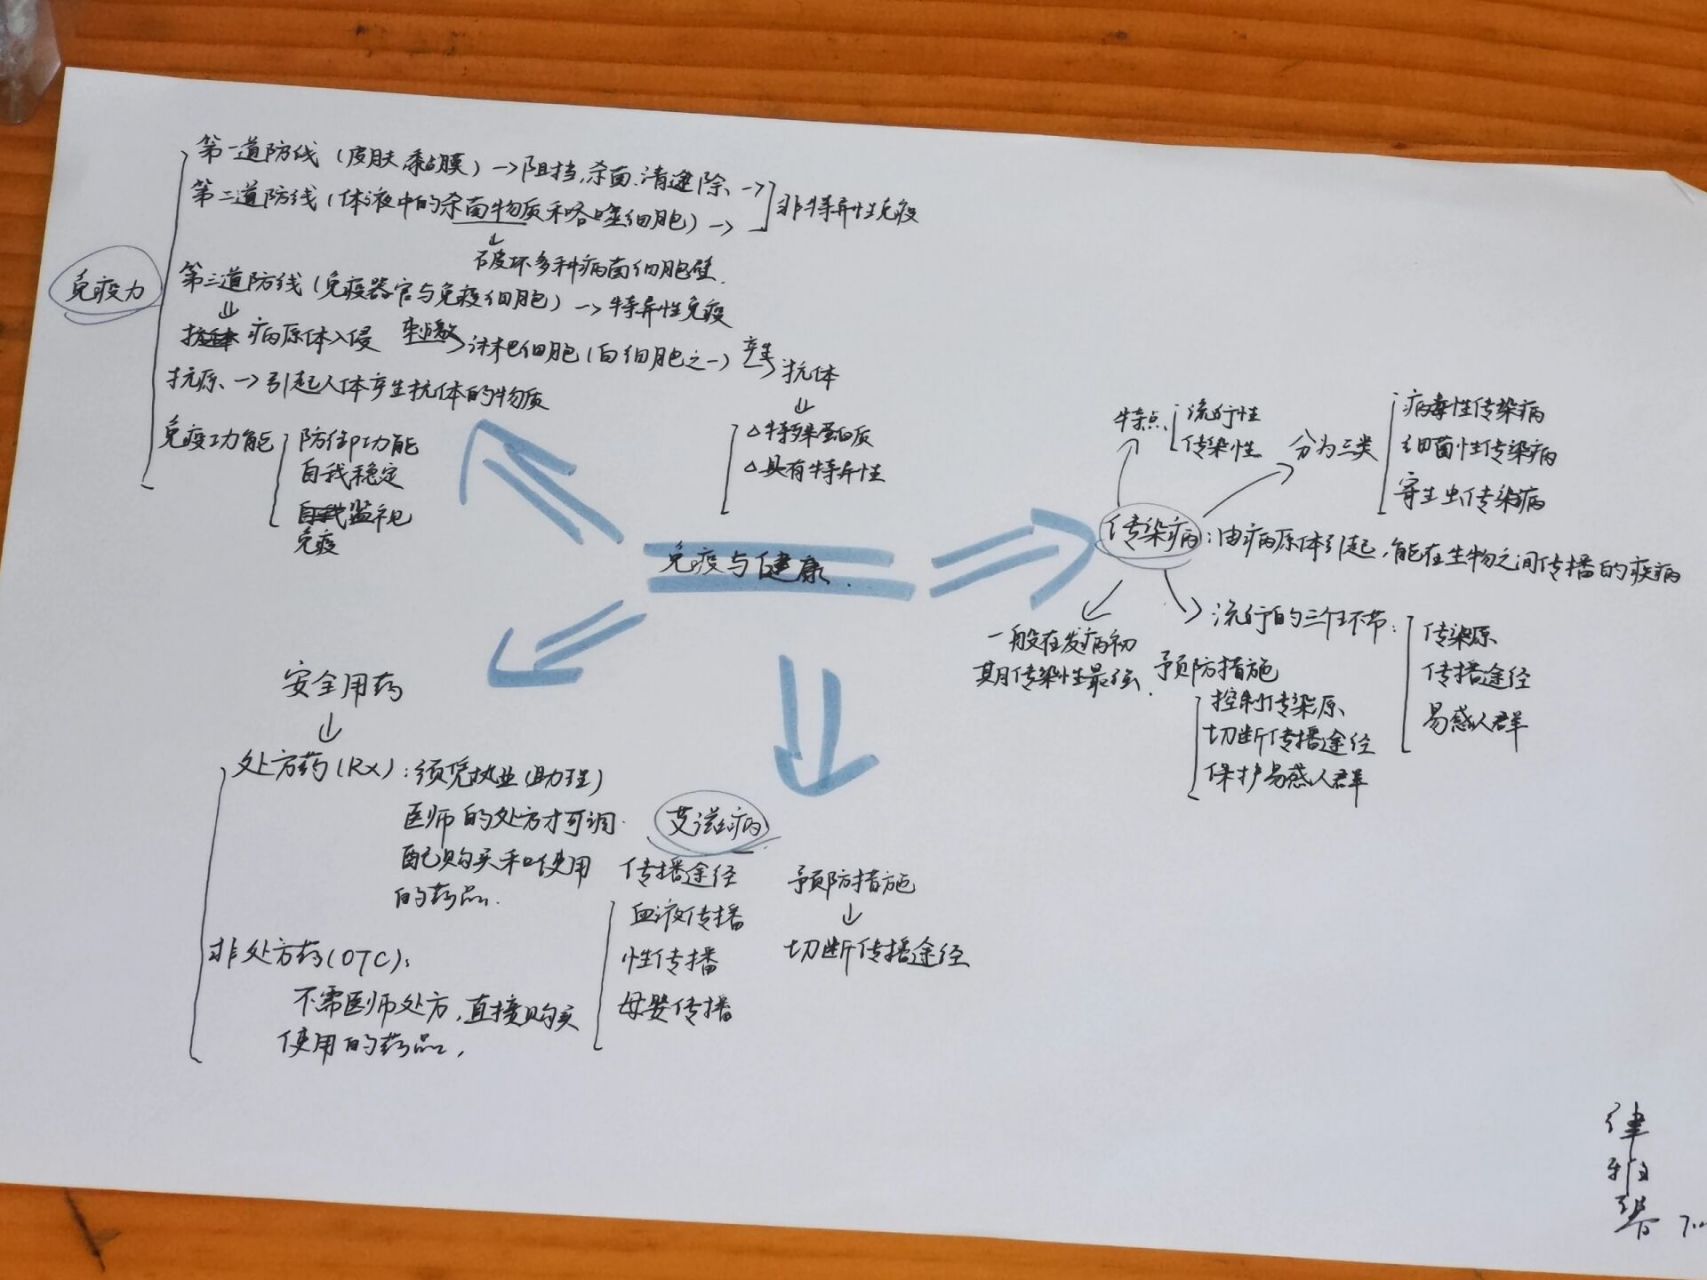 第一道防线（皮肤 黏膜）→阻挡,杀菌.清除、→
第二道防线（体液中的杀菌物质和吞噬细胞）→
非特异性免疫
↓
破坏多种病菌细胞壁.
免疫力
第三道防线（免疫器官与免疫细胞）→特异性免疫
⇓
病原体入侵 刺激→淋巴细胞（白细胞之一）产生→抗体
抗原、→引起人体产生抗体的物质
免疫功能
防御功能
自我稳定
免疫监视
↓
△特殊蛋白质
△具有特异性
免疫与健康.
特点
流行性
传染性
分为三类
病毒性传染病
细菌性传染病
寄生虫传染病
传染病:由病原体引起,能在生物之间传播的疾病
一般在发病初
期传染性最强.
流行的三个环节:
传染源
传播途径
易感人群
预防措施
控制传染源、
切断传播途径
保护易感人群
安全用药
↓
处方药(Rx):须凭执业(助理)
医师的处方才可调
配购买和使用
的药品.
非处方药(OTC):
不需医师处方,直接购买
使用的药品,
艾滋病
传播途径
血液传播
性传播
母婴传播
预防措施
↓
切断传播途径